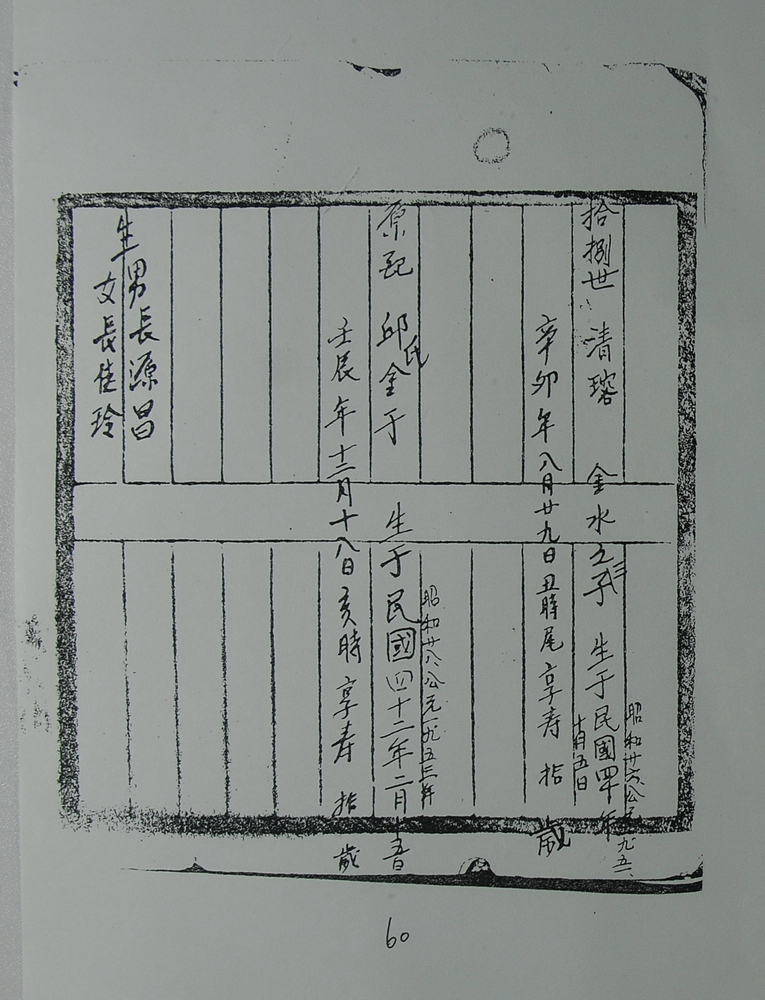 拾捌世 清瑢 金水之三子 生于民國四十年
十月五日
昭和廿六公元一九五一
辛卯年八月廿九日丑時尾享寿 拾 歲
原配 邱氏金于 生于民國四十二年二月十五日
昭和廿八公元一九五三年
壬辰年十二月十八日亥時享寿 拾 歲
生男長源昌
女長佳玲
60